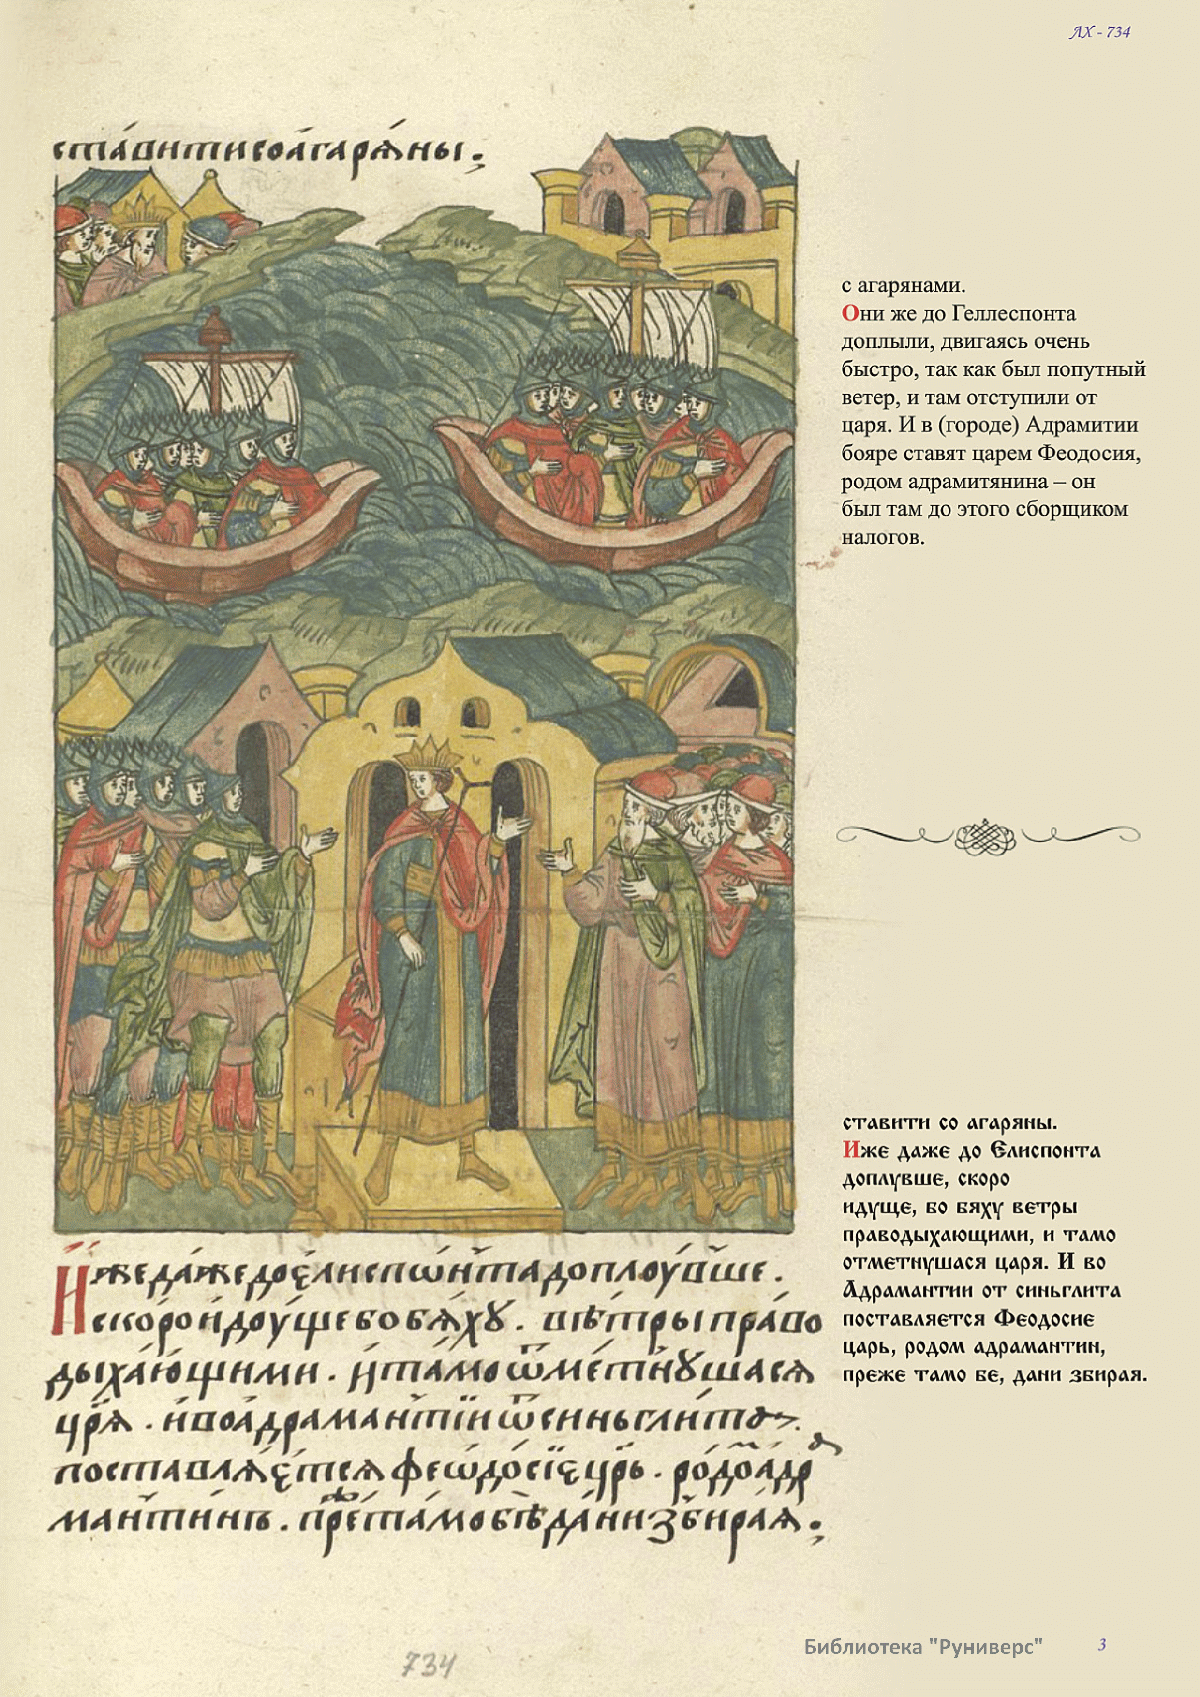 ЛХ - 734
ста́вити со ага́рѧны.
с агарянами.
Они же до Геллеспонта
доплыли, двигаясь очень
быстро, так как был попутный
ветер, и там отступили от
царя. И в (городе) Адрамитии
бояре ставят царем Феодосия,
родом адрамитянина – он
был там до этого сборщиком
налогов.
ставити со агаряны.
Иже даже до Елиспонта
доплувше, скоро
идуще, бо бяху ветры
праводыхающими, и тамо
отметнушася царя. И во
Адрамантии от синьглита
поставляется Феодосие
царь, родом адрамантин,
преже тамо бе, дани збирая.
И҆́же да́же до є҆лиспѡ́нта доплоу́вше.
скоро и҆доу́ще бо бѧ́хꙋ. вѣ́тры пра́во
дыха́ющими. и҆ та́мо ѿме́тнꙋшасѧ
цр҃ѧ̀. и҆ во а҆драма́нтїи ѿ синьгли́та.
поставлѧ́етсѧ феѡдо́сїе цр҃ь. ро́дом а҆дра
ма́нти́нъ. пре́же та́мо бѣ̀ да́ни збира́ѧ.
734
Библиотека "Руниверс"
3